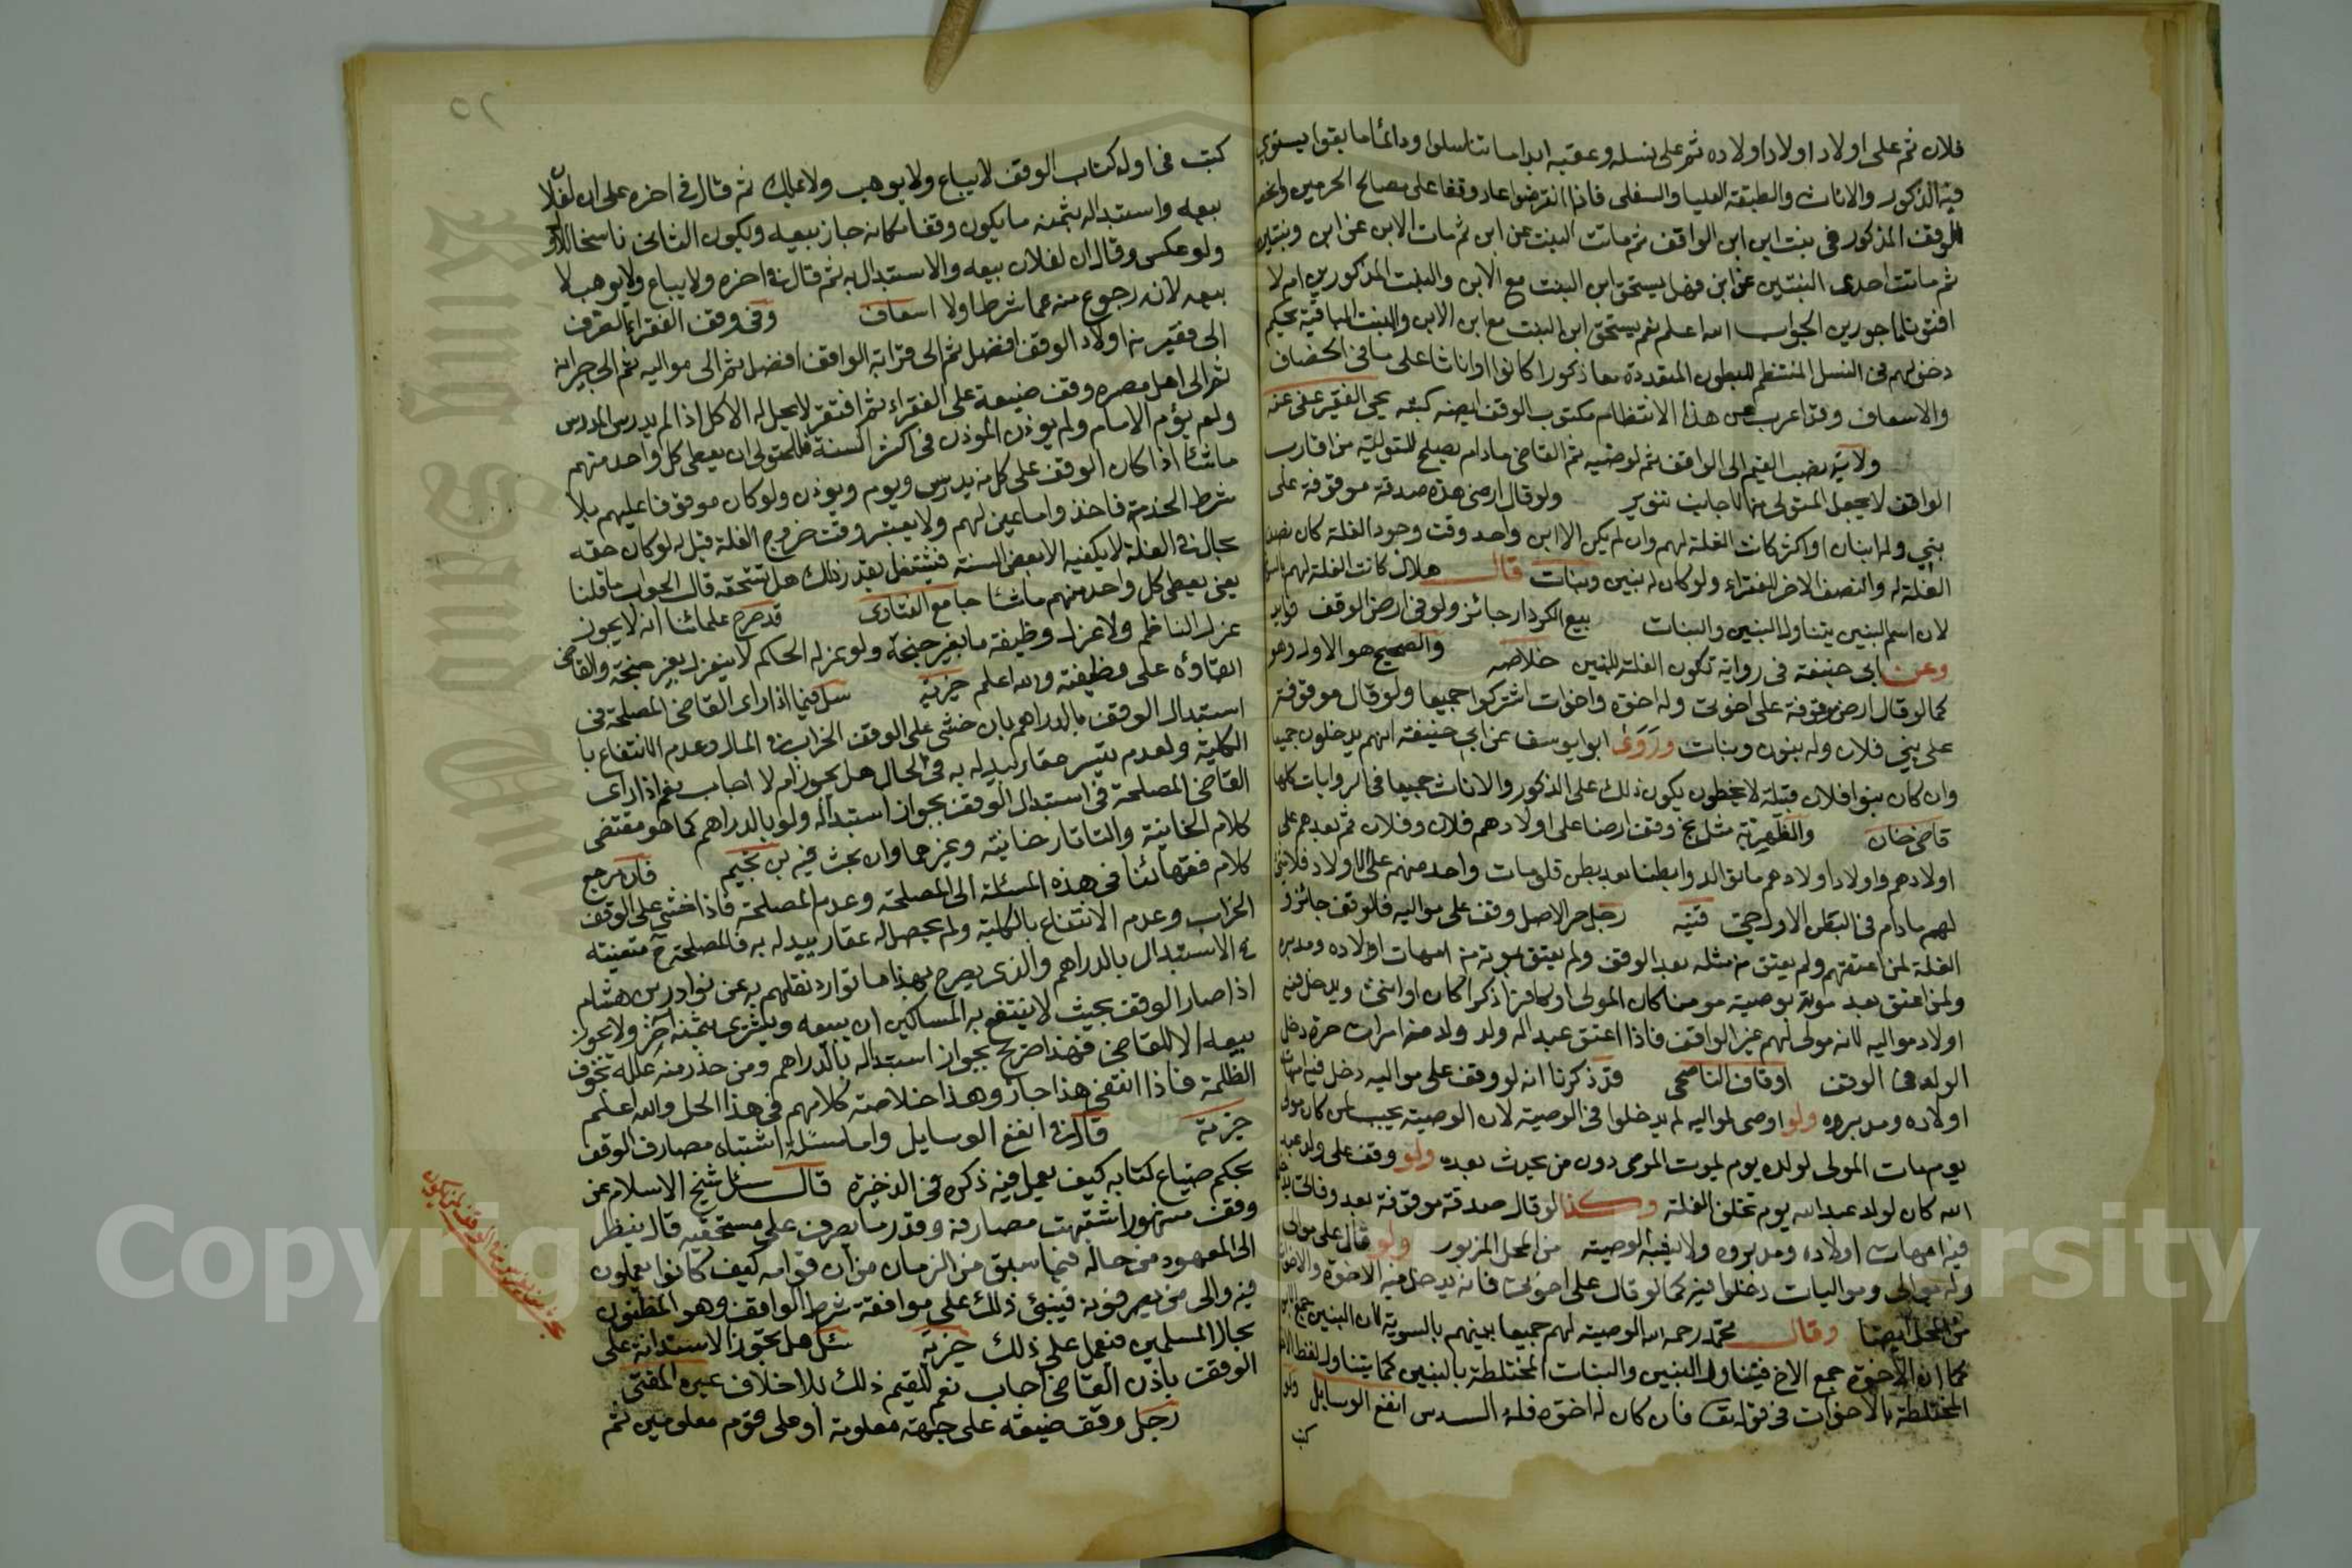 فلان ثم على اولاد اولاد اولاده ثم على نسله وعقبه ابدا ما تناسلوا ودائما ما بقوا يستوي
فيه الذكور والاناث والطبقة العليا والسفلى فاذا انقرضوا عاد وقفا على مصالح الحرمين
الوقف المذكور في بنت ابن ابن الواقف ثم ماتت البنت عن ابن ثم مات الابن عن ابن وبنتين
ثم ماتت احدى البنتين عن ابن فهل يستحق ابن البنت مع الابن والبنت المذكورين ام لا
افتونا ماجورين الجواب الله اعلم نعم يستحق ابن البنت مع ابن الابن والبنت الباقية بحكم
دخولهم في النسل المنتظم للبطون المتعددة معا ذكورا كانوا او اناثا على ما في الخصاف
والاسعاف وقد اعرب عن هذا الانتظام مكتوب الوقف ايضه كتبه يحيى الفقير عفى عنه
ولاية نصب القيم الى الواقف ثم لوصيه ثم القاضي مادام يصلح للتولية من اقارب
الواقف لا يجعل المتولي من الاجانب تنوير ولو قال ارضي هذه صدقة موقوفة على
بني وله ابنان او اكثر كانت الغلة لهم وان لم يكن الا ابن واحد وقت وجود الغلة كان نصف
الغلة له والنصف الاخر للفقراء ولو كان له بنين وبنات قال هلال كانت الغلة لهم
لان اسم البنين يتناول البنين والبنات بيع الكردار جائز ولو في ارض الوقف
وعن ابي حنيفة في رواية تكون الغلة للبنين خلاصه والصحيح هو الاول وهو
كما لو قال ارض موقوفة على اخوتي وله اخوة واخوات اشتركوا جميعا ولو قال موقوفة
على بني فلان وله بنون وبنات وروى ابو يوسف عن ابي حنيفة انهم يدخلون جميعا
وان كان بنوا فلان قبيلة لا يحصون يكون ذلك على الذكور والاناث جميعا في الروايات كلها
قاضي خان والظهيرية وقف ارضا على اولادهم فلان وفلان ثم بعدهم على
اولادهم واولاد اولادهم ما توالدوا بطنا بعد بطن واحد منهم على الاولاد
لهم مادام في البطن الاول قنيه رجل حر الاصل وقف على مواليه فالوقف جائز و
الغلة لمن اعتقهم ولم يعتق من مثله بعد الوقف ولم يعتق بموته من امهات اولاده ومدبره
ولمن اعتق بعد موته بوصية مؤمنا كان المولى او كافرا ذكرا كان او انثى ويدخل فيه
اولاد مواليه لانه مولى لهم غير الواقف فاذا اعتق عبدا له ولد ولد من امرات حرة دخل
الولد في الوقف اوقاف الناصحي قد ذكرنا انه لو وقف على مواليه دخل فيه امهات
اولاده ومدبروه ولو اوصى لمواليه لم يدخلوا في الوصية لان الوصية يجب لمن كان مولى
يوم مات المولى لولده يوم يموت الموصي دون من يحدث بعده ولو وقف على ولد عبد
الله كان لولد عبد الله يوم تخلق الغلة وكذا لو قال صدقة موقوفة بعد وفاتي
فيه امهات اولاده ومدبروه ولا يشبه الوصية من المحل المزبور ولو قال على موالي
وله موالي ومواليات دخلوا فيه كما لو قال على اخوتي فانه يدخل فيه الاخوة والاخوات
من المحل ايضا وقال محمد رحمه الله الوصية لهم جميعا بينهم بالسوية لان البنين جمع
كما ان الاخوة جمع الاخ فيتناول البنين والبنات المختلطة بالبنين كما يتناول لفظ
المختلطة بالاخوات في قوله تعا فان كان له اخوة فلامه السدس انفع الوسايل ولو
كتب
٥٢
كتب في اول كتاب الوقف لا يباع ولا يوهب ولا يملك ثم قال في اخره على ان لفلان
بيعه واستبداله بثمنه ما يكون وقفا مكانه جاز بيعه ويكون الثاني ناسخا للاول
ولو عكس وقال ان لفلان بيعه والاستبدال به ثم قال في اخره ولا يباع ولا يوهب لا
بيعه لانه رجوع منه عما شرط اولا اسعاف وفي وقف الفقراء الصرف
الى فقير من اولاد الواقف افضل ثم الى قرابة الواقف افضل ثم الى مواليه ثم الى جيرانه
ثم الى اهل مصره وقف ضيعة على الفقراء ثم افتقر لا يحل له الاكل اذا لم يدرس المدرس
ولم يؤم الامام ولم يوذن الموذن في اكثر السنة فللمتولي ان يعطي كل واحد منهم
ما شاء اذا كان الوقف على كل من يدرس ويوم ويوذن ولو كان موقوفا عليهم بلا
شرط الخدمة فاخذ واما عين لهم ولا يعتبر وقت خروج الغلة قيل له لو كان حقه
بحال في الغلة لا يكفيه الا بعض السنة فيشتغل بقدر ذلك هل يستحقه قال الجواب ما قلنا
يعني يعطي كل واحد منهم ما شاء جامع الفتاوى قد صرح علمائنا انه لا يجوز
عزل الناظم ولا عزل وظيفة ما بغير جنحة ولو عزله الحاكم لا ينعزل بغير جنحة والقاضي
ابقاؤه على وظيفته والله اعلم خيرية سئل فيما اذا راى القاضي المصلحة في
استبدال الوقف بالدراهم بان خشى على الوقف الخراب في المال وعدم الانتفاع با
الكلية ولعدم تيسر عقار ليبدله به في الحال هل يجوز ام لا اجاب نعم اذا راى
القاضي المصلحة في استبدال الوقف يجوز استبداله ولو بالدراهم كما هو مقتضى
كلام الخانية والتاتارخانية وغيرهما وان بحث فيه بن نجيم فان مرجع
كلام فقهائنا في هذه المسئلة الى المصلحة وعدم المصلحة فاذا خشي على الوقف
الخراب وعدم الانتفاع بالكلية ولم يحصل له عقار يبدله به فالمصلحة ح متعينة
في الاستبدال بالدراهم والذي يصرح بهذا ما توارد نقلهم به عن نوادر بن هشام
اذا صار الوقف بحيث لا ينتفع به المساكين ان يبيعه ويشتري بثمنه آخر ولا يجوز
بيعه الا للقاضي فهذا صرح بجواز استبداله بالدراهم ومن حذر منه علله بخوف
الظلمة فاذا انتفى هذا جاز وهذا خلاصة كلامهم في هذا المحل والله اعلم
خيرية قال في انفع الوسايل واما مسئلة اشتباه مصارف الوقف
بحكم ضياع كتابه كيف يعمل فيه ذكره في الذخيرة قال سئل شيخ الاسلام عن
وقف مشهور اشتبهت مصارفه وقدر ما يصرف على مستحقيه قال ينظر
الى المعهود من حاله فيما سبق من الزمان من ان قوامه كيف كانوا يعملون
فيه والى من يصرفونه فيبنى ذلك على موافقة شرط الواقف وهو المظنون
بحال المسلمين فيعمل على ذلك خيرية سئل هل تجوز الاستدانة على
الوقف باذن القاضي اجاب نعم للقيم ذلك بلا خلاف عبره المفتى
رجل وقف ضيعته على جهة معلومة او على قوم معلومين ثم